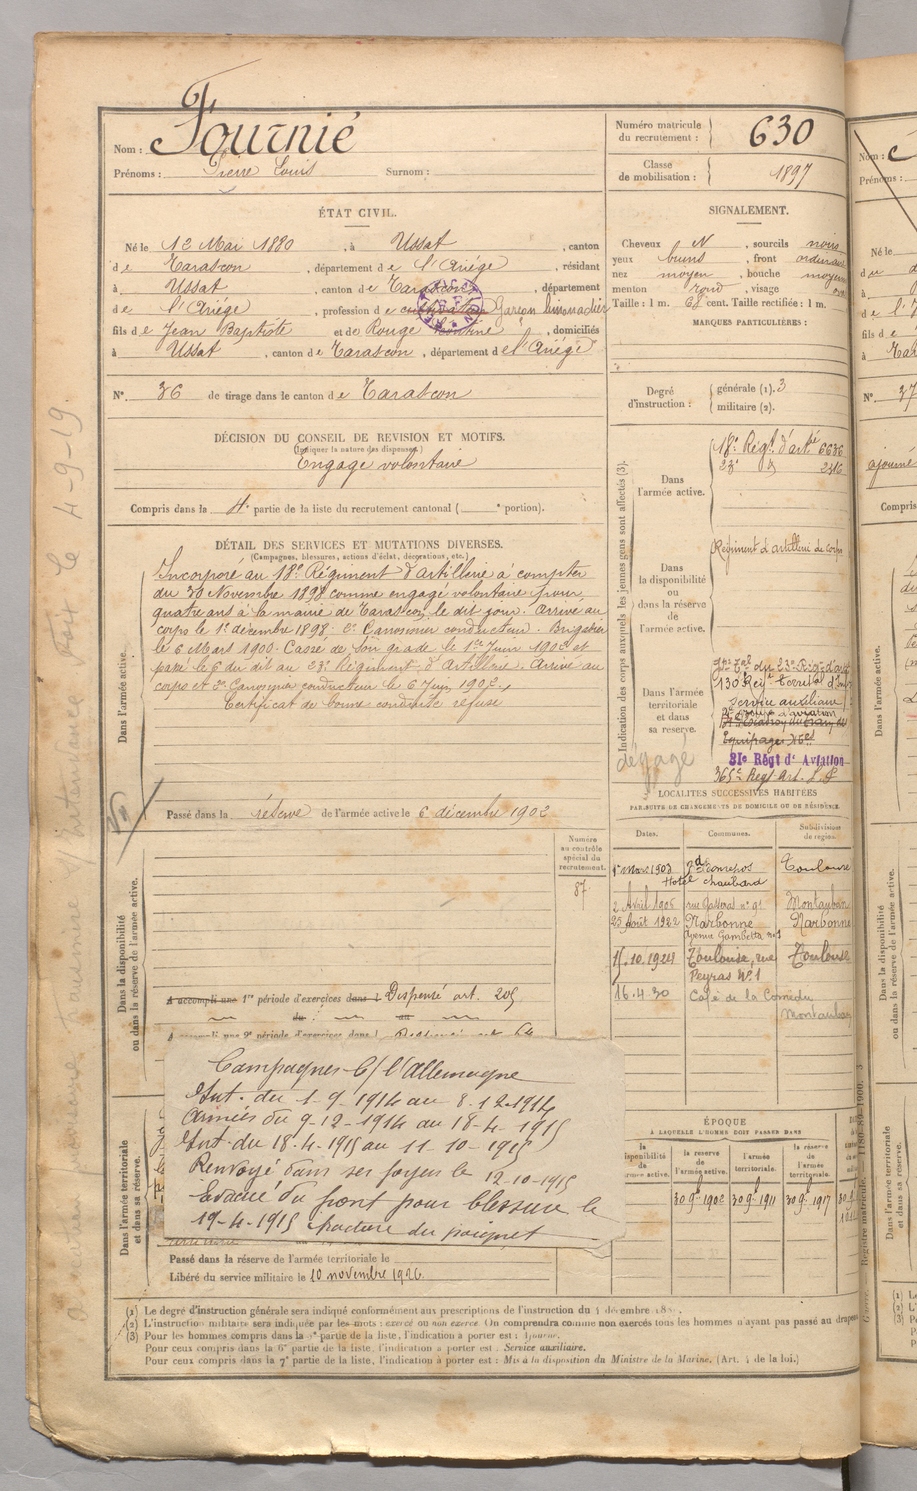 Nom : Fournié
Prénoms : Pierre Louis Surnom :
Numéro matricule du recrutement : 630
Classe de mobilisation : 1897
ÉTAT CIVIL.
Né le 12 Mai 1880, à Ussat, canton
de Tarascon, département de l'Ariége, résidant
à Ussat, canton de Tarascon, département
de l'Ariége, profession de Garçon limonadier
fils de Jean Baptiste et de Rouge, domiciliés
à Ussat, canton de Tarascon, département de l'Ariége
N° 36 de tirage dans le canton de Tarascon
DÉCISION DU CONSEIL DE REVISION ET MOTIFS.
(Indiquer la nature des dispenses.)
Engagé volontaire
Compris dans la 4e partie de la liste du recrutement cantonal ( e portion).
SIGNALEMENT.
Cheveux N, sourcils noirs
yeux bruns, front ordinaire
nez moyen, bouche moyenne
menton rond, visage
Taille : 1 m. 68 cent. Taille rectifiée : 1 m.
MARQUES PARTICULIÈRES :
Degré d'instruction : générale (1). 3
militaire (2).
DÉTAIL DES SERVICES ET MUTATIONS DIVERSES.
(Campagnes, blessures, actions d'éclat, décorations, etc.)
Dans l'armée active.
Incorporé au 18e Régiment d'artillerie à compter
du 30 Novembre 1898 comme engagé volontaire pour
quatre ans à la mairie de Tarascon, le dit jour. Arrivé au
corps le 1er décembre 1898. 2e Canonnier conducteur. Brigadier
le 6 Mars 1900. Cassé de son grade le 1er Juin 1902 et
passé le 6 du dit au 23e Régiment d'Artillerie. Arrivé au
corps et 2e Canonnier conducteur le 6 Juin 1902.
Certificat de bonne conduite refusé
Passé dans la réserve de l'armée active le 6 décembre 1902
Indication des corps auxquels les jeunes gens sont affectés (3).
Dans l'armée active.
18e Régt d'artie 6636
23e d° 2316
Dans la disponibilité ou dans la réserve de l'armée active.
Régiment d'artillerie de corps
Dans l'armée territoriale et dans sa réserve.
130 Régt Territal d'Inf
Service auxiliaire
Equipages
dégagé
31e Régt d'Aviation
365e Régt Art.
LOCALITÉS SUCCESSIVES HABITÉES
PAR SUITE DE CHANGEMENTS DE DOMICILE OU DE RÉSIDENCE.
Dates. Communes. Subdivision de région.
1er Mars 1903 Toulouse
Hotel Chaubard
2 Avril 1906 Montauban
25 Août 1922 Narbonne Narbonne
Gambetta
15.10.1924 Toulouse, rue Toulouse
Peyras N° 1
16.4.30 Café de la Comédie
Montauban
Numéro au contrôle spécial du recrutement.
87
Dans la disponibilité ou dans la réserve de l'armée active.
A accompli une 1re période d'exercices dans l Dispensé art. 205
A accompli une 2e période d'exercices dans l
Campagnes C/ l'Allemagne
Int. du 1-9-1914 au 8-12-1914
Armées du 9-12-1914 au 18-4-1915
Int. du 18-4-1915 au 11-10-1915
Renvoyé dans ses foyers le 12-10-1915
Evacué du front pour blessure le
19-4-1915 fracture du poignet
Dans l'armée territoriale et dans sa réserve.
Passé dans la réserve de l'armée territoriale le
Libéré du service militaire le 10 novembre 1926.
ÉPOQUE
À LAQUELLE L'HOMME DOIT PASSER DANS
la disponibilité de l'armée active. la réserve de l'armée active. l'armée territoriale. la réserve de l'armée territoriale.
30 9bre 1902 30 9bre 1911 30 9bre 1917
(1) Le degré d'instruction générale sera indiqué conformément aux prescriptions de l'instruction du 4 décembre
(2) L'instruction militaire sera indiquée par les mots : exercé ou non exercé. On comprendra comme non exercés tous les hommes n'ayant pas passé au drapeau
(3) Pour les hommes compris dans la partie de la liste, l'indication à porter est : Ajourné.
Pour ceux compris dans la 6e partie de la liste, l'indication à porter est : Service auxiliaire.
Pour ceux compris dans la 7e partie de la liste, l'indication à porter est : Mis à la disposition du Ministre de la Marine. (Art. 4 de la loi.)